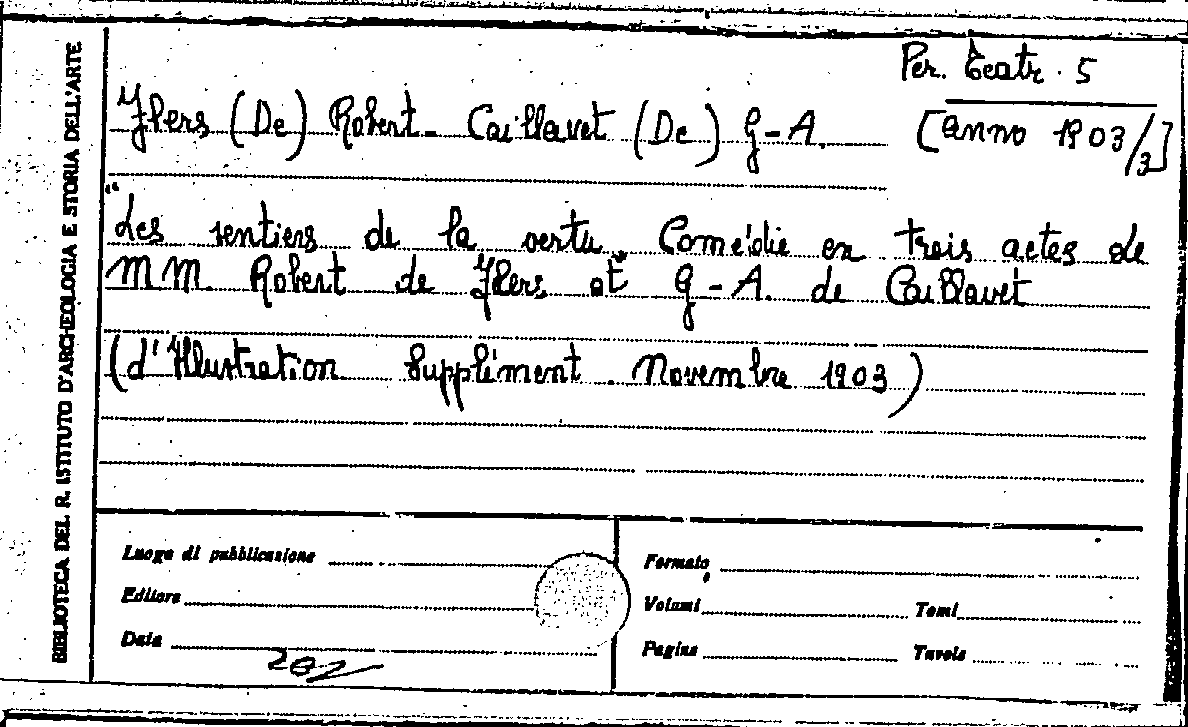 BIBLIOTECA DEL R. ISTITUTO D'ARCHEOLOGIA E STORIA DELL'ARTE
Per. Teatr. 5
Flers (De) Robert - Caillavet (De) G-A.
[anno 1903/3]
"Les sentiers de la vertu. Comédie en trois actes de
MM. Robert de Flers et G-A. de Caillavet
(d'Illustration Supplément. Novembre 1903)
Luogo di pubblicazione
Editore
Data
Formato
Volumi Tomi
Pagine Tavole